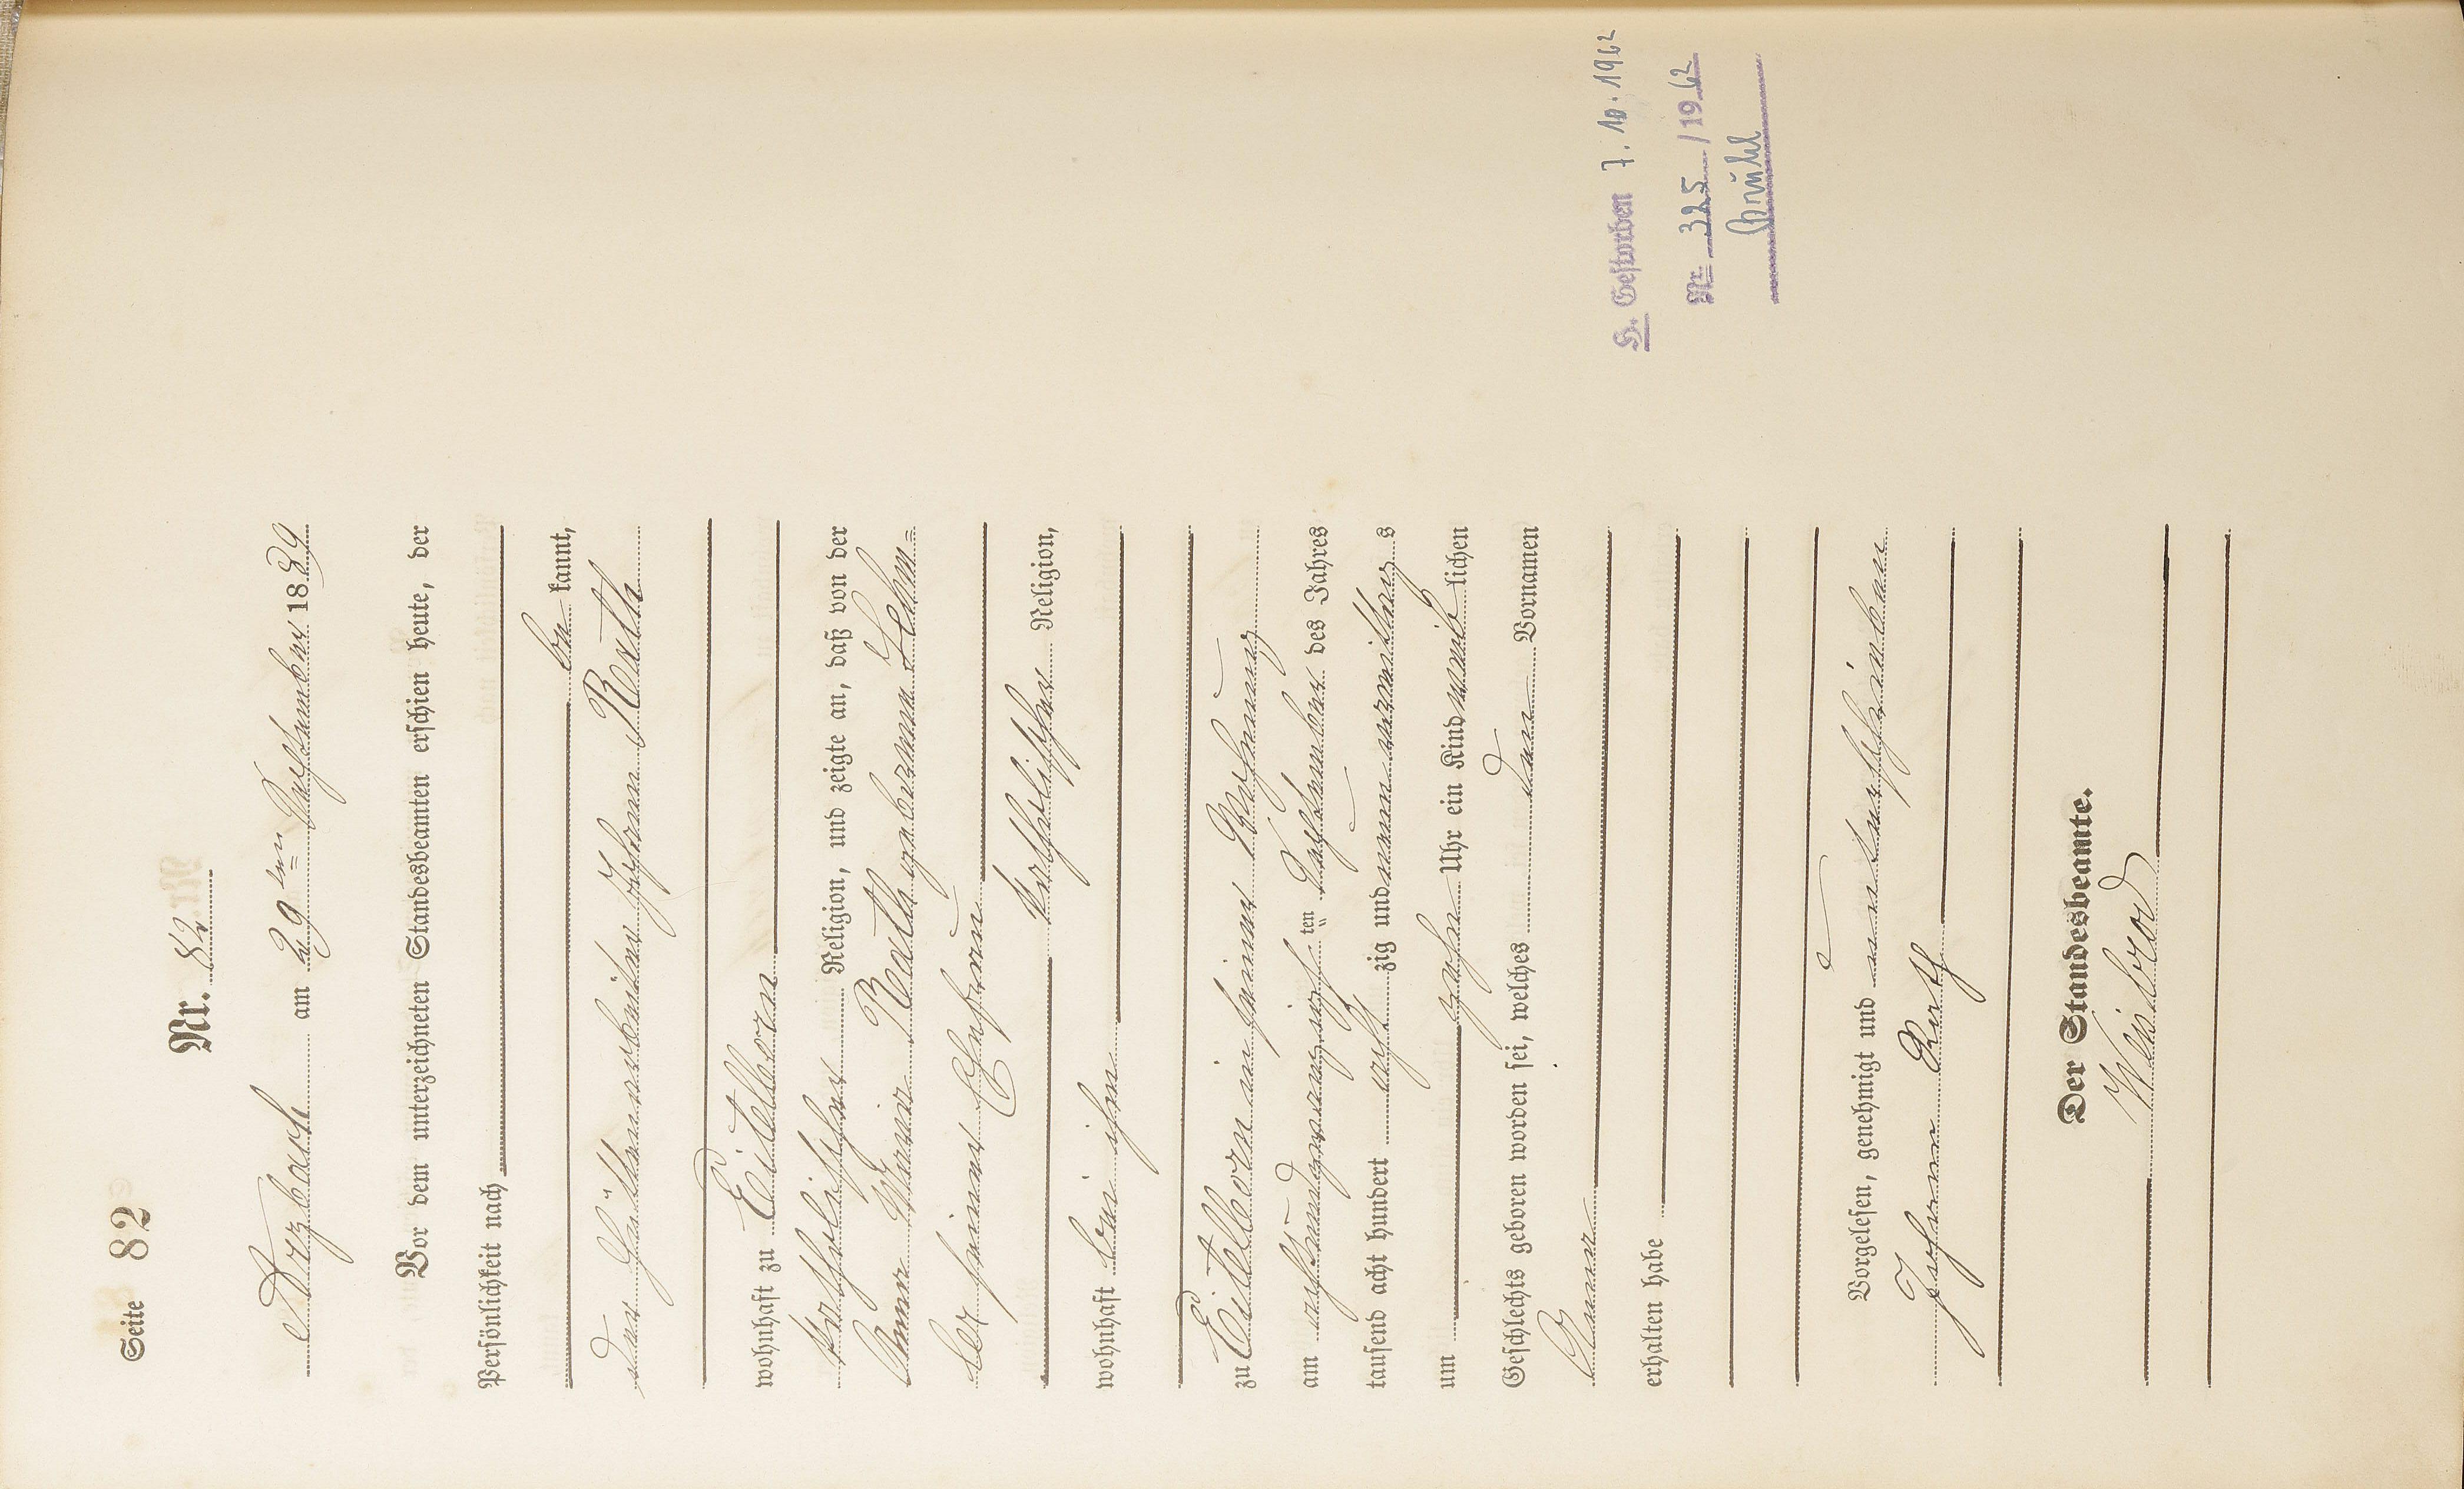 Seite 82
Nr. 82.
Arzbach am 29ten September 1889
Vor dem unterzeichneten Standesbeamten erschien heute, der
Persönlichkeit nach
be kannt,
der Hüttenarbeiter Johann Reath
wohnhaft zu Eitelborn
katholischer Religion, und zeigte an, daß von der
Anna Maria Reath geborene
seiner Ehefrau
katholischer Religion,
wohnhaft bei ihm
zu Eitelborn in seiner Wohnung
am achtundzwanzigsten September des Jahres
tausend acht hundert acht zig und neun vormittags
um zehn Uhr ein Kind weib lichen
Geschlechts geboren worden sei, welches den Vornamen
Anna
erhalten habe
Vorgelesen, genehmigt und unterschrieben
Johann
Der Standesbeamte.
Weisbrod
H. Gestorben 7. 10. 1962
Nr. 325 / 1962